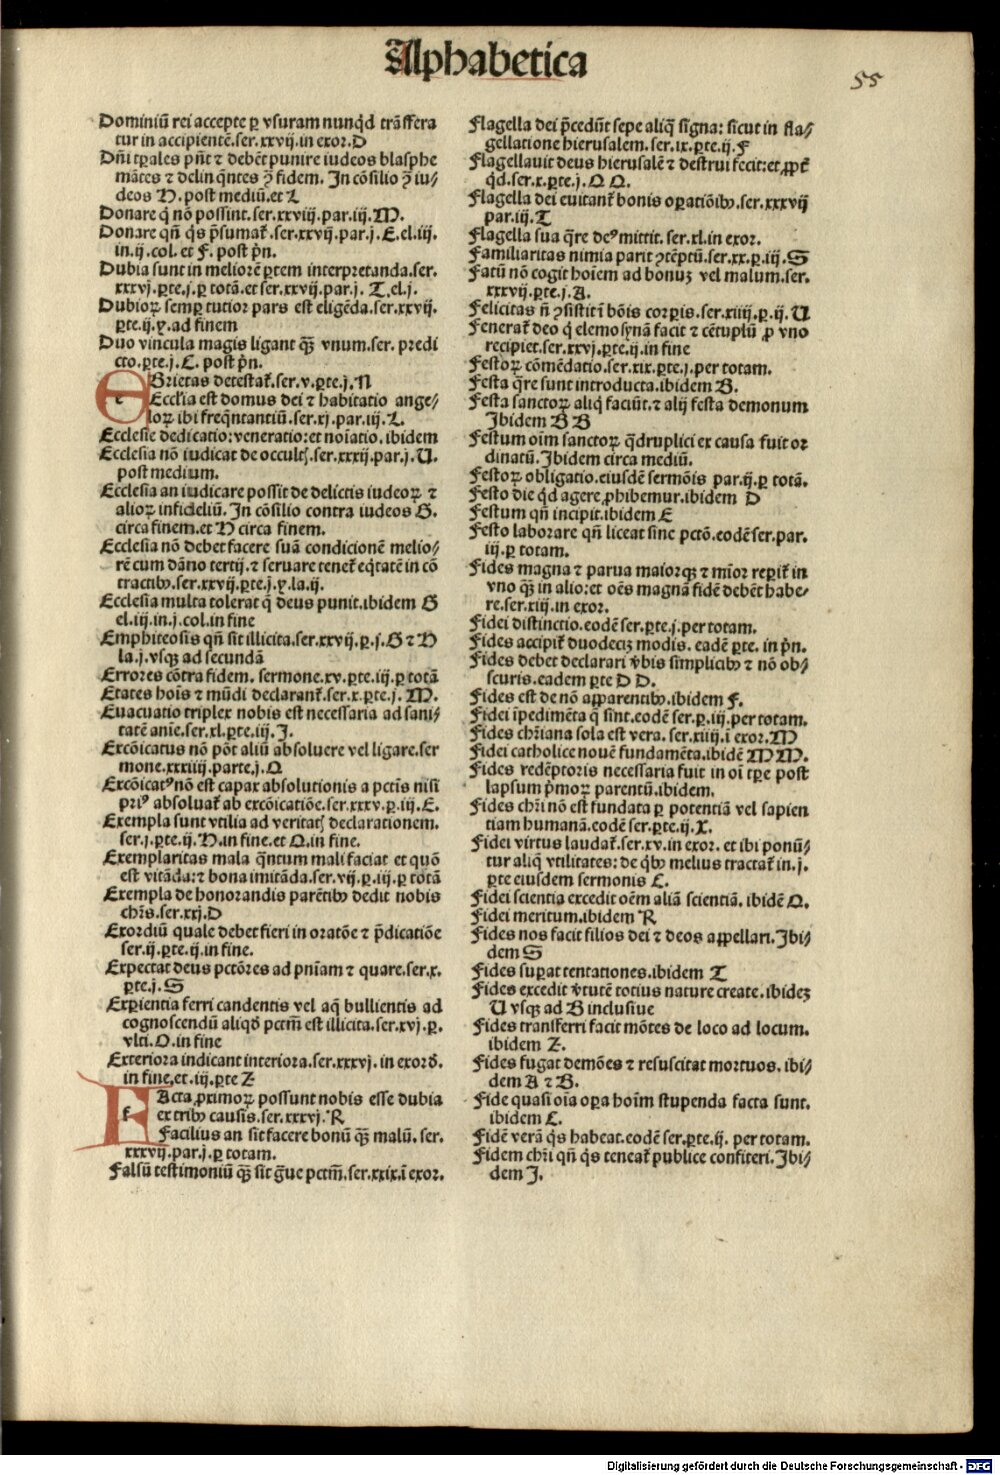 Alphabetica
55
Dominiū rei accepte ꝑ vsuram nunq̄d trāsfera
tur in accipientē.ser.xxvij.in exor.D
Dn̄i tꝑales pn̄t ⁊ debēt punire iudeos blasphe
mātes ⁊ delinq̄ntes ꝯ fidem. In cōsilio ꝯ iu⸗
deos H. post mediū.et L
Donare q̄ nō possint.ser.xxviij.par.iij.M.
Donare qn̄ q̄s p̄sumat̄.ser.xxvij.par.j.E.el.iij.
in.ij.col.et F.post p̄n.
Dubia sunt in meliorē ꝑtem interpretanda.ser.
xxxvj.ꝑte.j.ꝑ totā.et ser.xxvij.par.j.T.el.j.
Dubioꝝ semꝑ tutior pars est eligēda.ser.xxvij.
ꝑte.ij.y.ad finem
Duo vincula magis ligant q̄ꝫ vnum.ser.predi
cto.ꝑte.j.C.post p̄n.
EBrietas detestat̄.ser.v.ꝑte.j.N
e Eccl'ia est domus dei ⁊ habitatio ange⸗
loꝝ ibi freq̄ntantiū.ser.xj.par.iij.L.
Ecclesie dedicatio:veneratio:et noīatio.ibidem
Ecclesia nō iudicat de occult'.ser.xxxij.par.j.U.
post medium.
Ecclesia an iudicare possit de delictis iudeoꝝ ⁊
alioꝝ infideliū.In cōsilio contra iudeos G.
circa finem.et H circa finem.
Ecclesia nō debet facere suā condicionē melio⸗
rē cum dāno tertij.⁊ seruare tenet̄ eq̄tatē in cō
tractibꝰ.ser.xxvij.ꝑte.j.y.la.ij.
Ecclesia multa tolerat q̄ deus punit.ibidem G
el.iij.in.j.col.in fine
Emphiteosis qn̄ sit illicita.ser.xxvij.ꝑ.j.G ⁊ H
la.j.vsqꝫ ad secundā
Errores cōtra fidem. sermone.xv.ꝑte.iij.ꝑ totā
Etates hoīs ⁊ mūdi declarant̄.ser.x.ꝑte.j.M.
Euacuatio triplex nobis est necessaria ad sani⸗
tatē anīe.ser.xl.ꝑte.iij.J.
Excōicatus nō pōt aliū absoluere vel ligare.ser
mone.xxxiiij.parte.j.Q
Excōicatꝰ nō est capax absolutionis a pctīs nisi
priꝰ absoluat̄ ab excōicatiōe.ser.xxxv.ꝑ.iij.E.
Exempla sunt vtilia ad veritat' declarationem.
ser.j.ꝑte.ij.H.in fine.et Q.in fine.
Exemplaritas mala q̄ntum mali faciat et quō
est vitāda:⁊ bona imitāda.ser.vij.ꝑ.iij.ꝑ totā
Exempla de honorandis parētibꝰ dedit nobis
chr̄s.ser.xxj.D
Exordiū quale debet fieri in oratōe ⁊ p̄dicatiōe
ser.ij.ꝑte.ij.in fine.
Expectat deus pctōres ad pniam ⁊ quare.ser.x.
ꝑte.j.S
Exꝑientia ferri candentis vel aq̄ bullientis ad
cognoscendū aliqd̄ pctm̄ est illicita.ser.xvj.ꝑ.
vlti.O.in fine
Exteriora indicant interiora.ser.xxxvj.in exord̄.
in fine.et.iij.ꝑte Z
f FActa ꝓximoꝝ possunt nobis esse dubia
ex tribꝰ causis.ser.xxxvj.R
Facilius an sit facere bonū q̄ꝫ malū.ser.
xxxvij.par.j.ꝑ totam.
Falsū testimoniū q̄ꝫ sit ḡue pctm̄.ser.xxix.ī exor.
Flagella dei p̄cedūt sepe aliq̄ signa: sicut in fla⸗
gellatione hierusalem.ser.ix.ꝑte.ij.F
Flagellauit deus hierusalē ⁊ destrui fecit:et ꝓpt̄
qd̄.ser.x.ꝑte.j.Q Q.
Flagella dei euitant̄ bonis oꝑatiōibꝰ.ser.xxxvij
par.iij.T
Flagella sua q̄re deꝰ mittit.ser.xl.in exor.
Familiaritas nimia parit ꝯtēptū.ser.xx.ꝑ.iij.S
Fatū nō cogit hoīem ad bonuꝫ vel malum.ser.
xxxvij.ꝑte.j.A.
Felicitas n̄ ꝯsistit ī bōis corꝑis.ser.xiiij.ꝑ.ij.U
Fenerat̄ deo q̄ elemosynā facit ⁊ cētuplū ꝓ vno
recipiet.ser.xxvj.ꝑte.ij.in fine
Festoꝝ cōmēdatio.ser.xix.ꝑte.j.per totam.
Festa q̄re sunt introducta.ibidem B.
Festa sanctoꝝ aliq̄ faciūt.⁊ alij festa demonum
Ibidem B B
Festum oīm sanctoꝝ q̄druplici ex causa fuit or
dinatū.Ibidem circa mediū.
Festoꝝ obligatio.eiusdē sermōis par.ij.ꝑ totā.
Festo die qd̄ agere ꝓhibemur.ibidem D
Festum qn̄ incipit.ibidem E
Festo laborare qn̄ liceat sine pctō.eodē ser.par.
iij.ꝑ totam.
Fides magna ⁊ parua maiorqꝫ ⁊ mīor reꝑit̄ in
vno q̄ꝫ in alio:et oēs magnā fidē debēt habe⸗
re.ser.xiij.in exor.
Fidei distinctio.eodē ser.ꝑte.j.per totam.
Fides accipit̄ duodeciꝫ modis. eadē ꝑte. in p̄n.
Fides debet declarari v̄bis simplicibꝰ ⁊ nō ob⸗
scuris.eadem ꝑte D D.
Fides est de nō apparentibꝰ.ibidem F.
Fidei īpedimēta q̄ sint.eodē ser.ꝑ.iij.per totam.
Fides chr̄iana sola est vera. ser.xiiij.ī exor.M
Fidei catholice nouē fundamēta.ibidē M M.
Fides redēptoris necessaria fuit in oī tꝑe post
lapsum p̄moꝝ parentū.ibidem.
Fides chr̄i nō est fundata ꝑ potentiā vel sapien
tiam humanā.eodē ser.ꝑte.ij.X.
Fidei virtus laudat̄.ser.xv.in exor. et ibi ponū⸗
tur aliq̄ vtilitates: de q̄bꝰ melius tractat̄ in.j.
ꝑte eiusdem sermonis C.
Fidei scientia excedit oēm aliā scientiā. ibidē Q.
Fidei meritum.ibidem R
Fides nos facit filios dei ⁊ deos appellari.Ibi⸗
dem S
Fides suꝑat tentationes.ibidem T
Fides excedit v̄tutē totius nature create.ibideꝫ
U vsqꝫ ad B inclusiue
Fides transferri facit mōtes de loco ad locum.
ibidem Z.
Fides fugat demōes ⁊ resuscitat mortuos. ibi⸗
dem A ⁊ B.
Fide quasi oīa oꝑa hoīm stupenda facta sunt.
ibidem C.
Fidē verā q̄s habeat.eodē ser.ꝑte.ij. per totam.
Fidem chr̄i qn̄ q̄s teneat̄ publice confiteri.Ibi⸗
dem J.
Digitalisierung gefördert durch die Deutsche Forschungsgemeinschaft - DFG